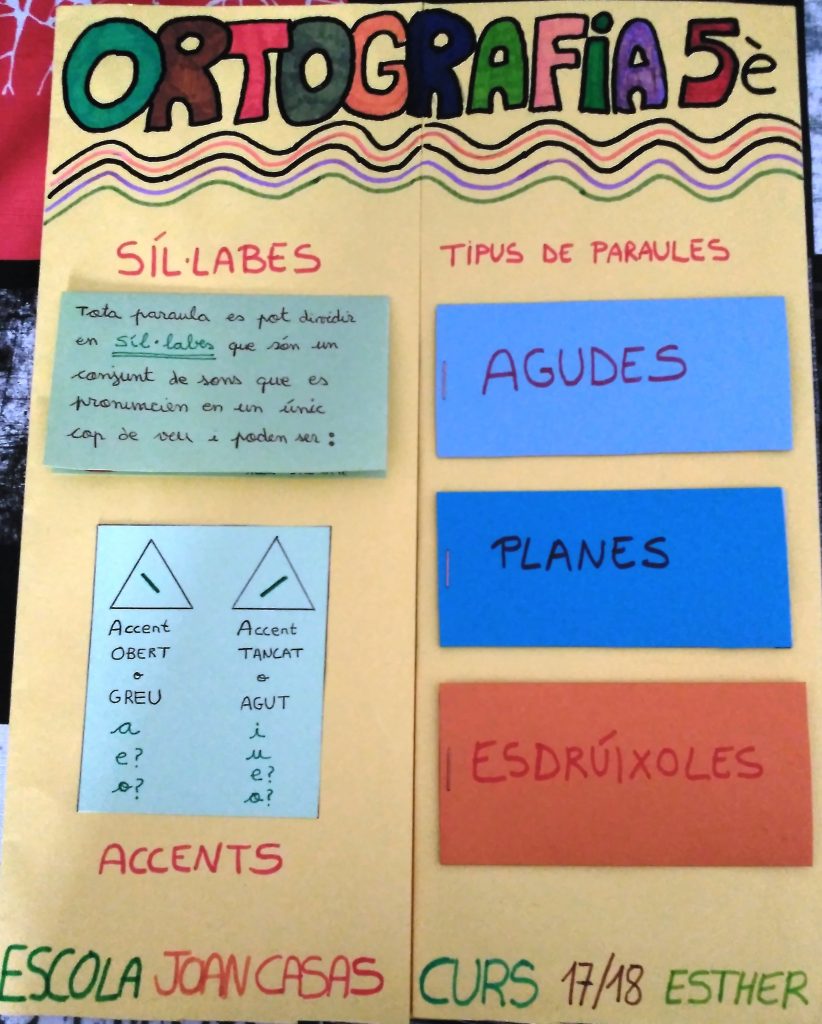 ORTOGRAFiA 5è
SÍL·LABES
Tota paraula es pot dividir
en síl·labes que són un
conjunt de sons que es
pronuncien en un únic
cop de veu i poden ser:
Accent
OBERT
o
GREU
a
e?
o?
Accent
TANCAT
o
AGUT
i
u
e?
o?
ACCENTS
TIPUS DE PARAULES
AGUDES
PLANES
ESDRÚIXOLES
ESCOLA JOAN CASAS
CURS 17/18 ESTHER